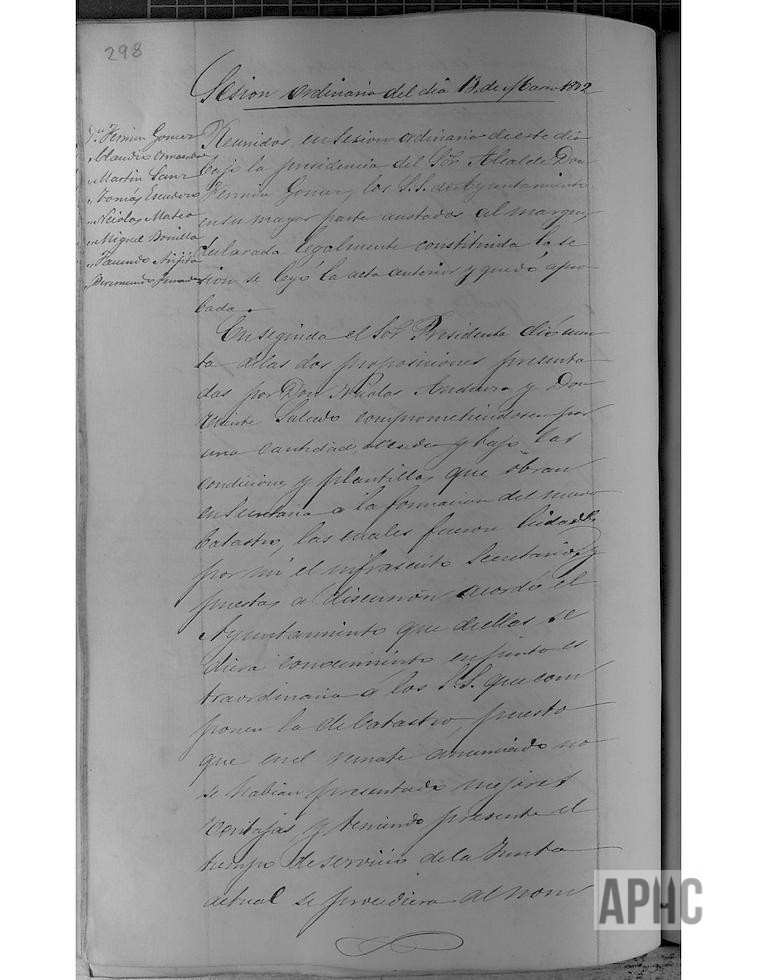 298
Sesion ordinaria del dia 13 de Marzo 1892
Dn. Fermin Gomar
" Claudio
" Martin Sanz
" Tomás Escudero
" Nicolas Mateo
" Miguel Bonilla
" Facundo
" Bermundo
Reunidos en sesion ordinaria de este dia
bajo la presidencia del Sor. Alcalde Don
Fermin Gomar, los S.S. de Ayuntamiento
en su mayor parte anotados al margen,
declarada legalmente constituida la se
sion se leyó la acta anterior y quedó apro
bada.
En seguida el Sor. Presidente dió cuen
ta de las dos proposiciones presenta
das por Don Nicolas Andueza y Don
Vicente Salcedo comprometiendose por
una cantidad alzada y bajo las
condiciones y plantillas que obran
en Secretaria a la formacion del nuevo
Catastro, las cuales fueron leidas
por mi el infrascrito Secretario, y
puestas a discusion acordó el
Ayuntamiento que de ellas se
diera conocimiento en junta es
traordinaria á los S.S. que com
ponen la de Catastro puesto
que en el remate anunciado no
se habian presentado mejores
ventajas, y teniendo presente el
tiempo de servicio de la Junta
actual se procediera al nom
APHC